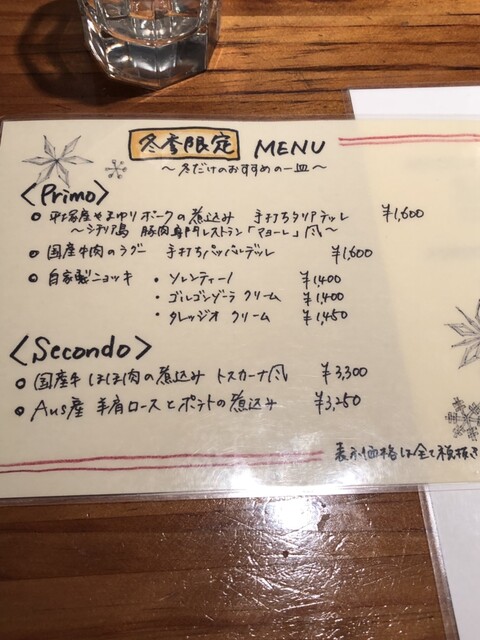 冬季限定 MENU
～冬だけのおすすめの一皿～
<Primo>
平塚産やまゆりポークの煮込み 手打ちタリアテッレ ¥1,600
～シチリア島 豚肉専門レストラン「マヨーレ」風～
国産牛肉のラグー 手打ちパッパルデッレ ¥1,600
自家製ニョッキ ・ソレンティーノ ¥1,400
・ゴルゴンゾーラ クリーム ¥1,400
・タレッジオ クリーム ¥1,450
<Secondo>
国産牛 ほほ肉の煮込み トスカーナ風 ¥3,300
Aus産 羊肩ロースとポテトの煮込み ¥3,250
表示価格は全て税抜き